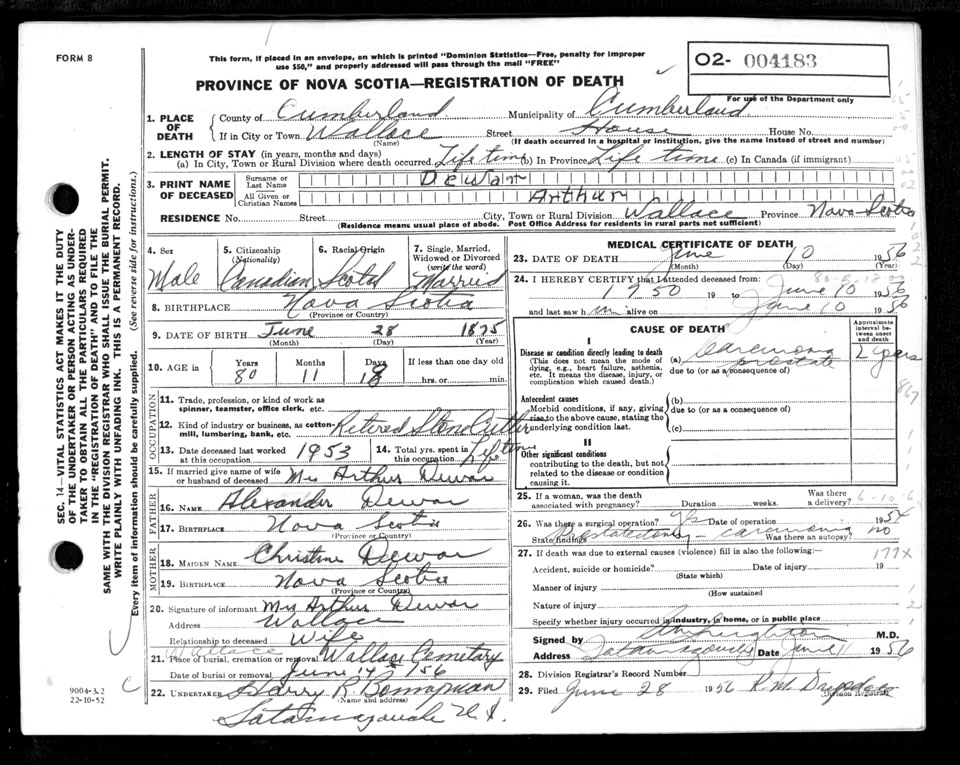 FORM 8
This form, if placed in an envelope, on which is printed "Dominion Statistics—Free, penalty for improper
use $50," and properly addressed will pass through the mail "FREE"
PROVINCE OF NOVA SCOTIA—REGISTRATION OF DEATH
02- 004183
For use of the Department only
1. PLACE OF DEATH
County of Cumberland Municipality of Cumberland
If in City or Town Wallace Street House House No.
(Name) (If death occurred in a hospital or institution, give the name instead of street and number)
2. LENGTH OF STAY (in years, months and days)
(a) In City, Town or Rural Division where death occurred Life time (b) In Province Life time (c) In Canada (if immigrant)
3. PRINT NAME OF DECEASED
Surname or Last Name Dewar
All Given or Christian Names Arthur
RESIDENCE No. Street City, Town or Rural Division Wallace Province Nova Scotia
(Residence means usual place of abode. Post Office Address for residents in rural parts not sufficient)
4. Sex Male
5. Citizenship (Nationality) Canadian
6. Racial Origin Scotch
7. Single, Married, Widowed or Divorced (write the word) Married
8. BIRTHPLACE Nova Scotia
(Province or Country)
9. DATE OF BIRTH June 28 1875
(Month) (Day) (Year)
10. AGE in Years 80 Months 11 Days 18 If less than one day old
hrs. or min.
OCCUPATION
11. Trade, profession, or kind of work as
spinner, teamster, office clerk, etc.
12. Kind of industry or business, as cotton-
mill, lumbering, bank, etc. Retired Stone Cutter
13. Date deceased last worked at this occupation 1953
14. Total yrs. spent in this occupation Lifetime
15. If married give name of wife
or husband of deceased Mrs Arthur Dewar
FATHER
16. NAME Alexander Dewar
17. BIRTHPLACE Nova Scotia
(Province or Country)
MOTHER
18. MAIDEN NAME Christine Dewar
19. BIRTHPLACE Nova Scotia
(Province or Country)
20. Signature of informant Mrs Arthur Dewar
Address Wallace
Relationship to deceased Wife
Wallace
21. Place of burial, cremation or removal Wallace Cemetary
Date of burial or removal June 14 1956
22. UNDERTAKER Harry R.
(Name and address)
MEDICAL CERTIFICATE OF DEATH
23. DATE OF DEATH June 10 1956
(Month) (Day) (Year)
24. I HEREBY CERTIFY that I attended deceased from:
1950 19 to June 10 1956
and last saw him alive on June 10 1956
CAUSE OF DEATH
Approximate interval between onset and death
I
Disease or condition directly leading to death
(This does not mean the mode of
dying, e.g., heart failure, asthenia,
etc. It means the disease, injury, or
complication which caused death.)
(a) Carcinoma prostate 2 years
due to (or as a consequence of)
Antecedent causes
Morbid conditions, if any, giving
rise to the above cause, stating the
underlying condition last.
(b)
due to (or as a consequence of)
(c)
II
Other significant conditions
contributing to the death, but not
related to the disease or condition
causing it.
25. If a woman, was the death
associated with pregnancy? Duration weeks. Was there a delivery?
6-10-6
26. Was there a surgical operation? yes Date of operation 1954
State findings Prostatectomy - carcinoma Was there an autopsy? no
27. If death was due to external causes (violence) fill in also the following:—
177X
Accident, suicide or homicide? Date of injury 19
(State which)
Manner of injury
(How sustained
Nature of injury
Specify whether injury occurred in industry, in home, or in public place
Signed by M.D.
Address Date June 11 1956
28. Division Registrar's Record Number
29. Filed June 28 1956
Division Registrar
SEC. 14—VITAL STATISTICS ACT MAKES IT THE DUTY
OF THE UNDERTAKER OR PERSON ACTING AS UNDER-
TAKER TO OBTAIN ALL THE PARTICULARS REQUIRED
IN THE "REGISTRATION OF DEATH" AND TO FILE THE
SAME WITH THE DIVISION REGISTRAR WHO SHALL ISSUE THE BURIAL PERMIT.
WRITE PLAINLY WITH UNFADING INK. THIS IS A PERMANENT RECORD.
Every item of information should be carefully supplied. (See reverse side for instructions.)
9004-3.2
22-10-52